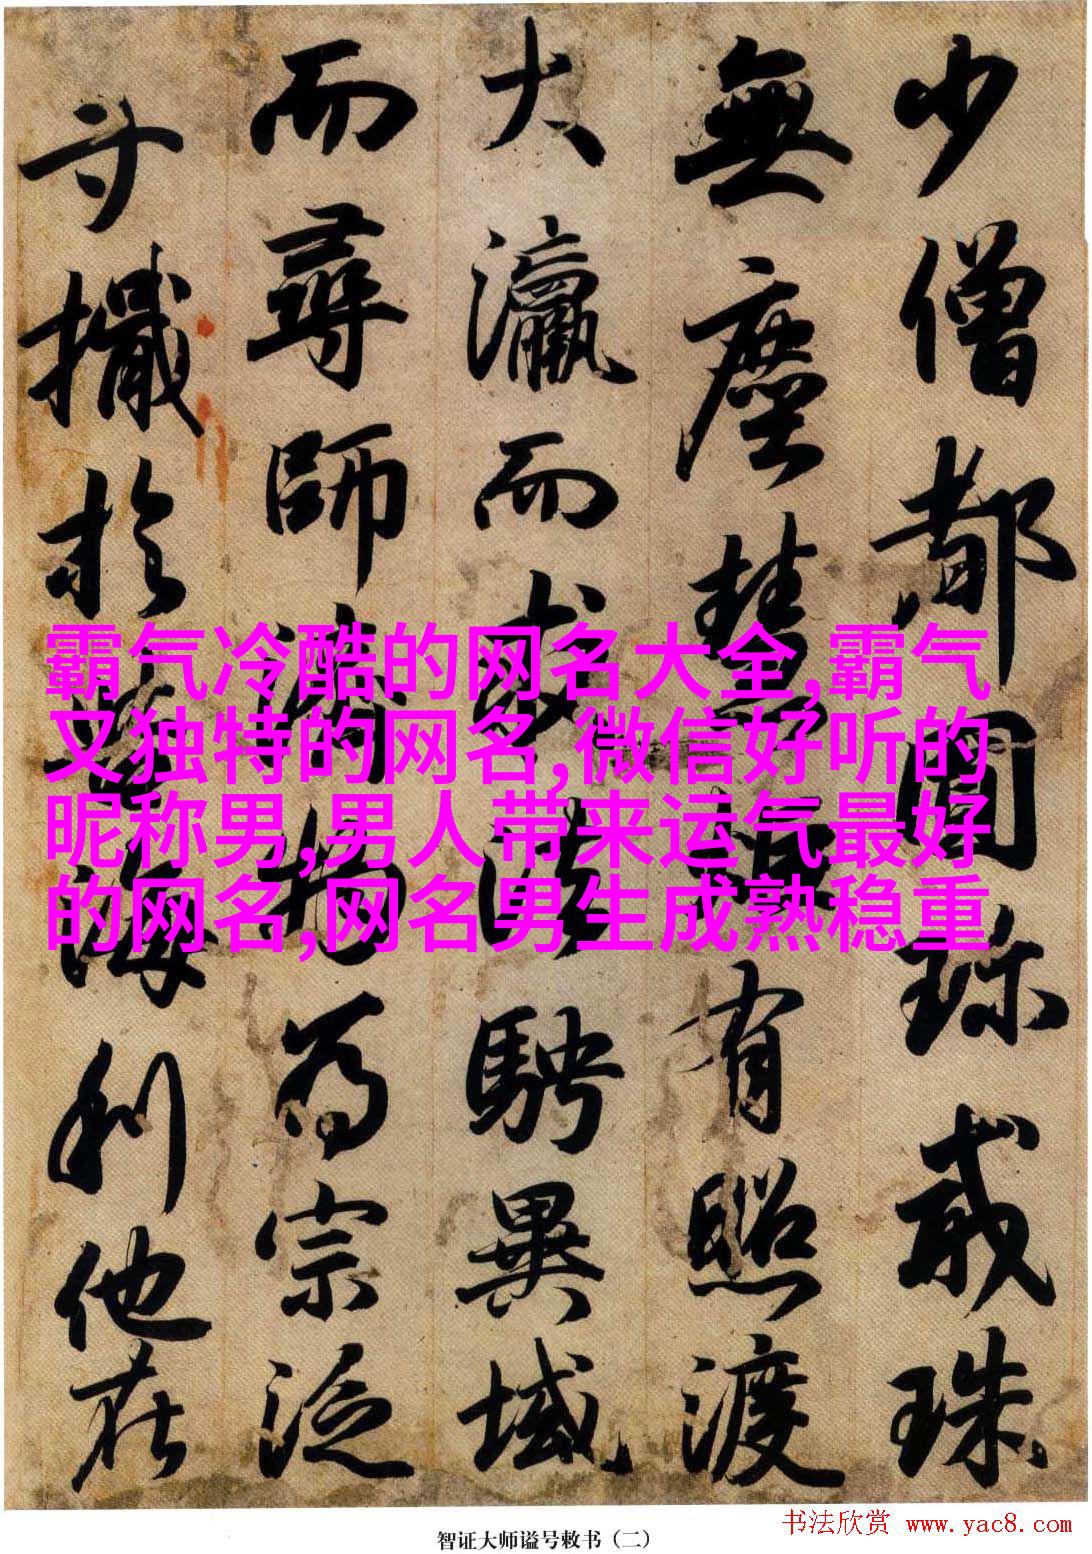 少僧都圓珍戒珠
無塵慧有照渡
大瀛而求法騁異域
而尋師濟物為宗泛
寸檝於海利他在
霸气冷酷的网名大全,霸气
又独特的网名,微信好听的
昵称男,男人带来运气最好
的网名,网名男生成熟稳重
智证大师谥号敕书（二）
书法欣赏 www.yac8.com